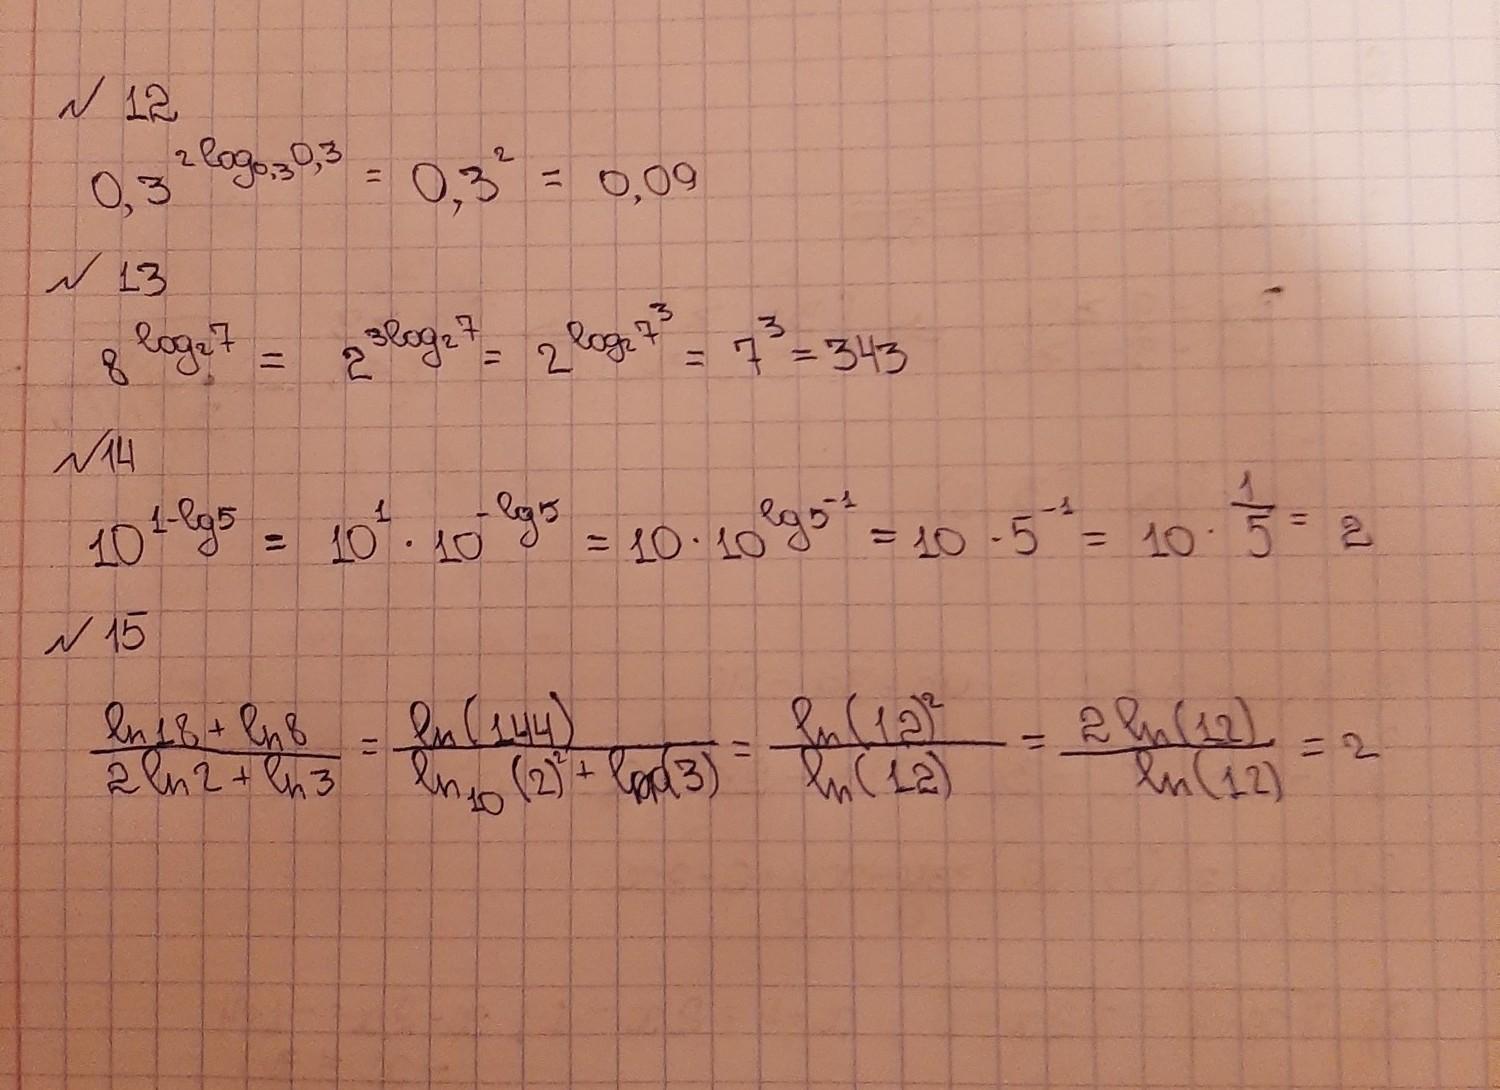 № 12
0,3^(2log_0,3 0,3) = 0,3² = 0,09
№ 13
8^(log₂7) = 2^(3log₂7) = 2^(log₂7³) = 7³ = 343
№14
10^(1-lg5) = 10¹ · 10^(-lg5) = 10 · 10^(lg5⁻¹) = 10 · 5⁻¹ = 10 · 1/5 = 2
№ 15
(ln18 + ln8)/(2ln2 + ln3) = ln(144)/(ln₁₀(2)² + (3)) = ln(12)²/ln(12) = 2ln(12)/ln(12) = 2